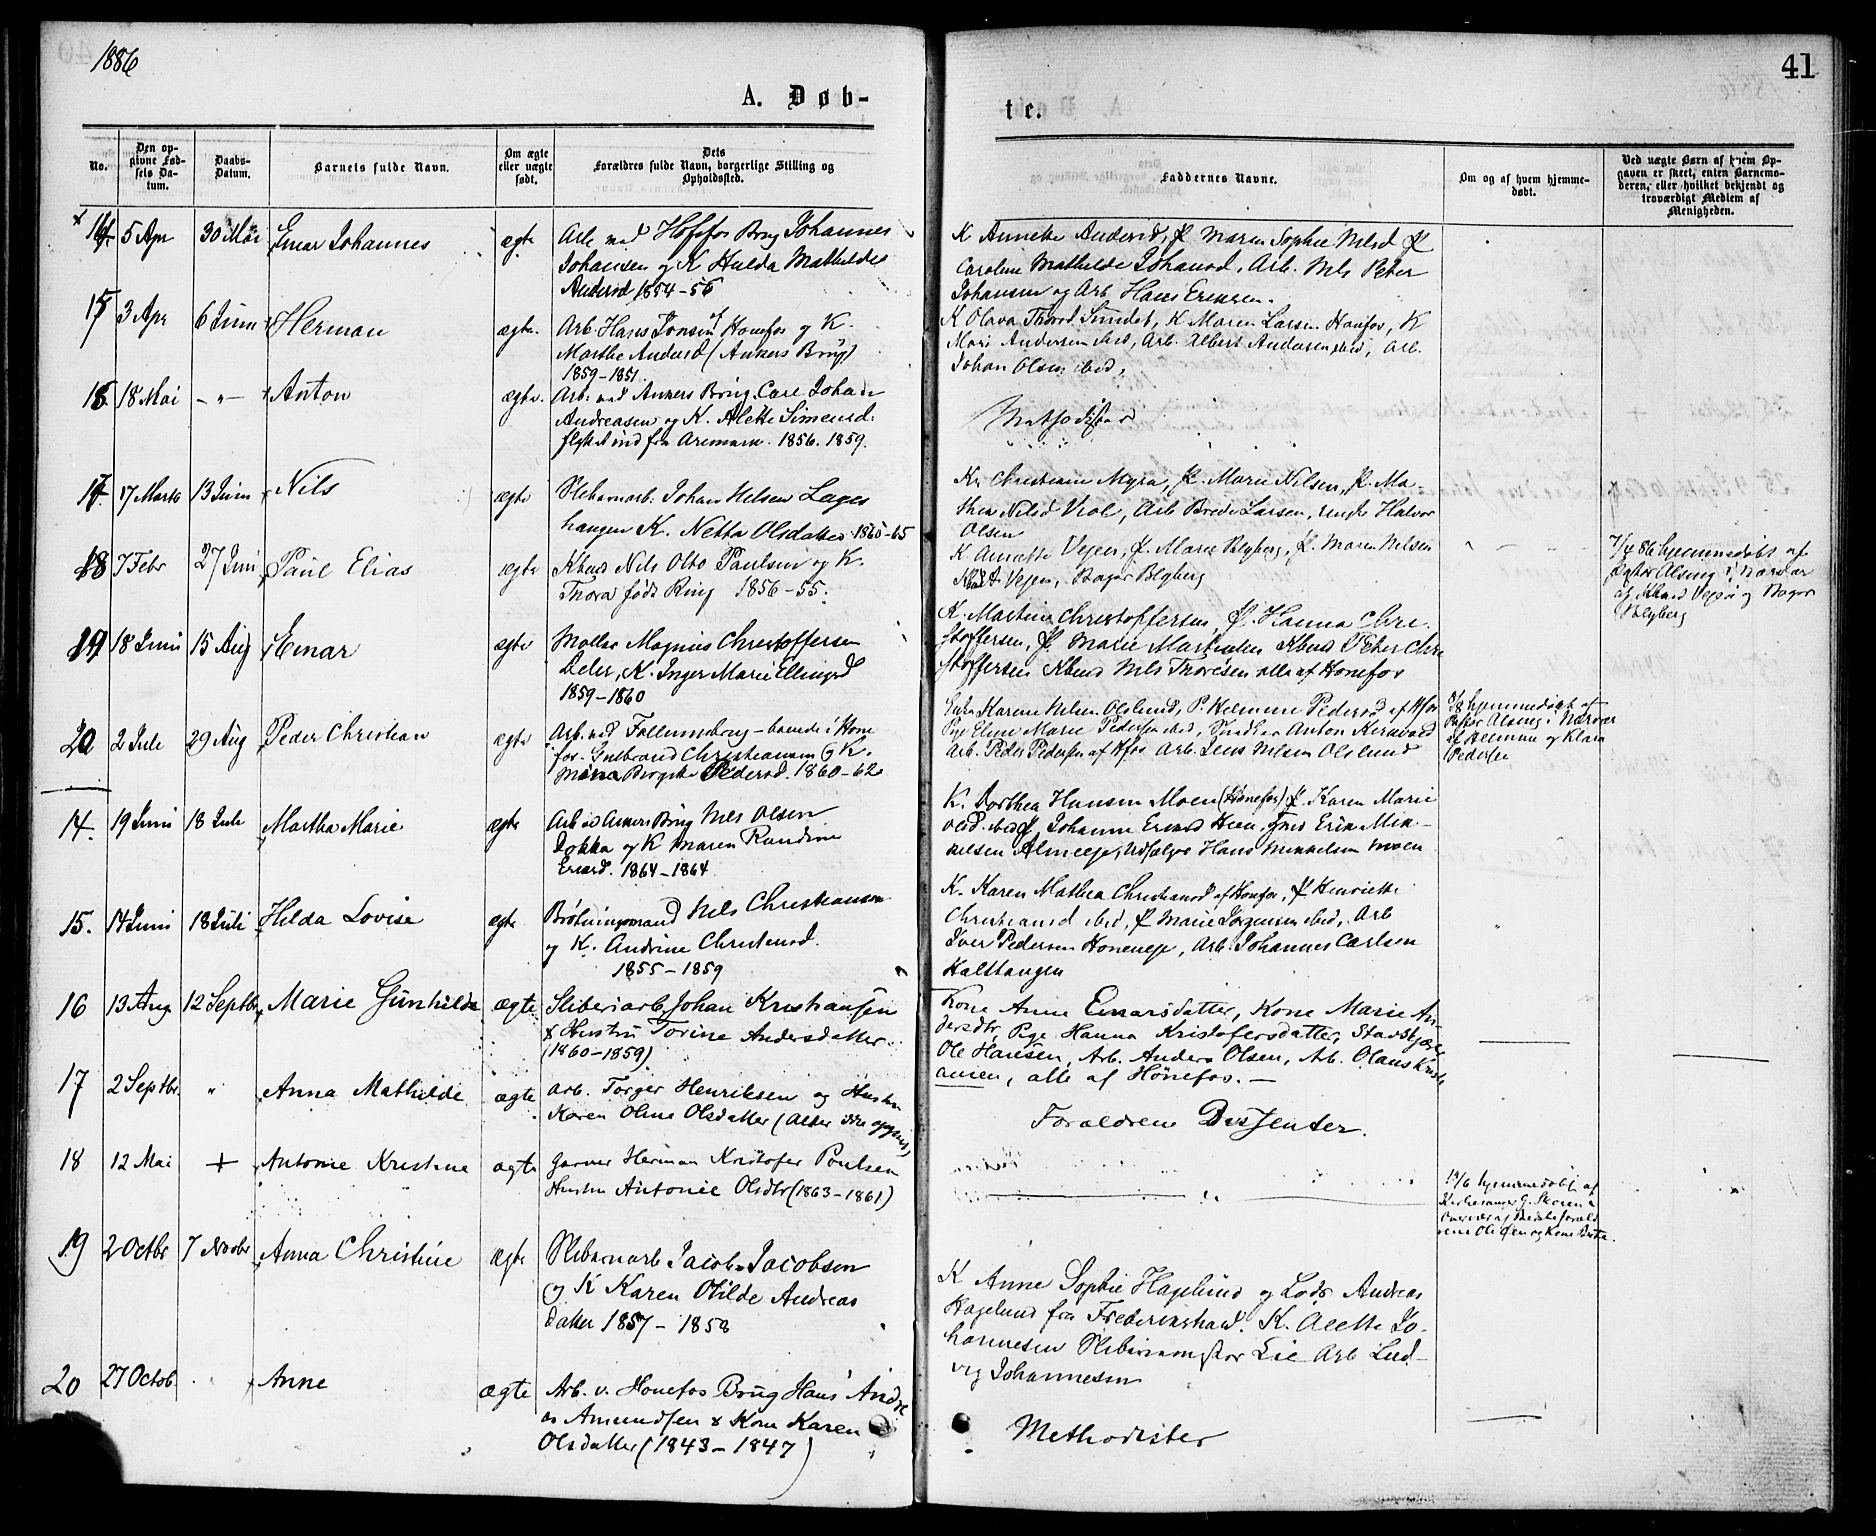 1886
41
A. Døb-
te.
No.
Den op-
givne Fød-
sels Da-
tum.
Daabs-
Datum.
Barnets fulde Navn.
Om ægte
eller uægte
født.
Dets
Forældres fulde Navn, borgerlige Stilling og
Opholdssted.
Faddernes Navne.
Om og af hvem hjemme-
døbt.
Ved uægte Børn af hvem Op-
gaven er skeet, enten Barnemo-
deren, eller hvilket bekjendt og
troværdigt Medlem af
Menigheden.
5 Apr 30 Mai Einar Johannes ægte Arb. ved Hofsfos Brug Johannes
Johansen og K Hulda Mathilde
Andersd 1854-56
K Annette Andersd, P Maren Sophie Nilsd P
Caroline Mathilde Johansd, Arb. Nils Peter
Johansen og Arb Hans Eriksen.
3 Apr 6 Juni Herman ægte. Arb Hans Jonsen Hønefos og K.
Marthe Andersd (Ankers Brug)
1859-1851
K Olava Thorsd, K Maren Larsen Hønfos, K
Mari Andersen ibid, Arb. Albert Andersen ibid, Arb.
Johan Olsen ibid.
18 Mai - " - Anton ægte. Arb. ved Ankers Brug Carl Johan
Andreasen og K. Alette Simensd:
flyttet ind fra Aremark. 1856. 1859.
17 Marts 13 Juni Nils ægte Sliberiarb. Johan Nilsen
haugen K. Netta Olsdatter 1860-65
K. Christiane Myra, P. Marie Nilsen, P. Ma-
thea Nilsd Viol, Arb Brede Larsen, Halvor
Olsen
18 7 Febr 27 Juni Paul Elias ægte Kbmd Nils Otto Paulsen og K.
Thora født Ring 1856-55.
K Annette Vejen, P. Marie Blyberg, P. Maren Nilsen
Vejen, Bager Blyberg
7/4 86 hjemmedøbt af
Pastor Alsing i Nærvær
af Vejen og Bager
Blyberg
19 18 Juni 15 Aug Einar ægte Møller Magnus Christoffersen
K. Inger Marie Ellingsd
1859-1860
K. Martine Christoffersen, P. Hanna Chri-
stoffersen, P. Marie Martinsen Kbmd Peter Chri
stoffersen Kbmd Nils Thoresen alle af Hønefos
20 2 Juli 29 Aug Peder Christian ægte Arb. ved Follumsbrug - boende i Høne
fos. Gulbrand Christiansen og K.
Mina Birgitte Pedersd. 1860-62
Enke Karine Nilsen Oslund, P. Helmine Pedersd af Hfos
Pige Eline Marie Pedersen ibid, Snedker Anton
Arb. Peder Pedersen af Hfos Arb. Jens Nilsen Oslund
hjemmedøbt af
Pastor Alsing i Nærvær
af Helmine og Klara
Pedersen
14. 19 Juni 18 Juli Martha Marie ægte Arb v Ankers Brug Nils Olsen
Dokka og K Maren Randine
Eriksd. 1864-1864
K. Dorthea Hansen Moen (Hønefos) P. Karen Marie
Olsd. ibid P. Johanne Eriksd Hen, Erik Mik-
kelsen, Hans Mikkelsen Moen
15. 14 Juni 18 Juli Hilda Lovise ægte Nils Christiansen
og K. Andrine Christensd.
1855-1859
K. Karen Mathea Christiansd af Hønfos, P Henriette
Christiansd ibid, P Marie Jørgensen ibid, Arb
Iver Pedersen Høneneje, Arb. Johannes Carlsen
16 13 Aug 12 Septbr Marie Gunhilde ægte Sliberiarb. Johan Kristiansen
& Hustru Torine Andersdatter.
(1860-1859)
Kone Anne Einarsdatter, Kone Marie An-
dersdtr, Pige Hanna Kristofersdatter,
Ole Hansen, Arb. Anders Olsen, Arb. Olaus Kristi
ansen, alle af Hønefos. -
17 2 Septbr. " Anna Mathilde ægte Arb. Torger Henriksen og Hustru
Karen Oline Olsdatter (Alder ikke opgivet)
Forældrene Dissenter.
18 12 Mai + Antonie Kristine ægte Garver Herman Kristofer Poulsen
Hustru Antonie Olsdtr (1863-1861)
hjemmedøbt af
Kirkesanger G.
Overvær af Bedsteforæld
rene Ole og Kone
19 2 Octbr 7 Novbr Anna Christine ægte Sliberiarb Jacob Jacobsen
og K Karen Otilde Andreas
datter 1857-1858
K Anne Sophie Hagelund og Lods Andreas
Hagelund fra Frederikshald. K. Alette Jo-
hannesen Slibermester Lie Arb Lud-
vig Johannesen
20 27 Octob. Anne ægte Arb. v. Hønefos Brug Hans Andre
as Amundsen & Kone Karen
Olsdatter (1843-1847)
Methodister